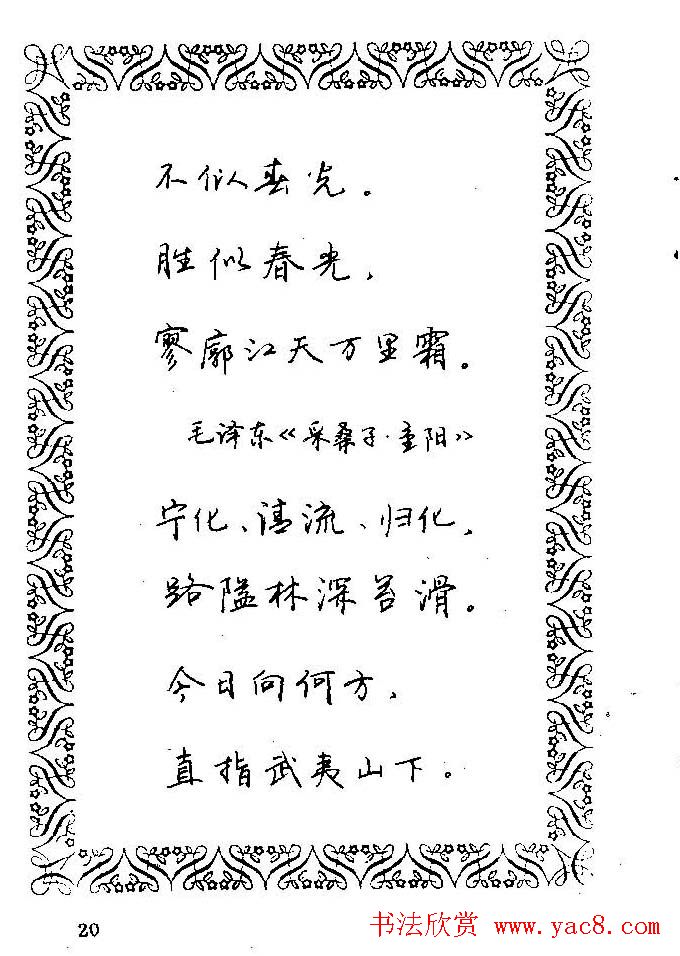 不似春光。
胜似春光，
寥廓江天万里霜。
毛泽东《采桑子·重阳》
宁化、清流、归化，
路隘林深苔滑。
今日向何方，
直指武夷山下。
20
书法欣赏 www.yac8.com